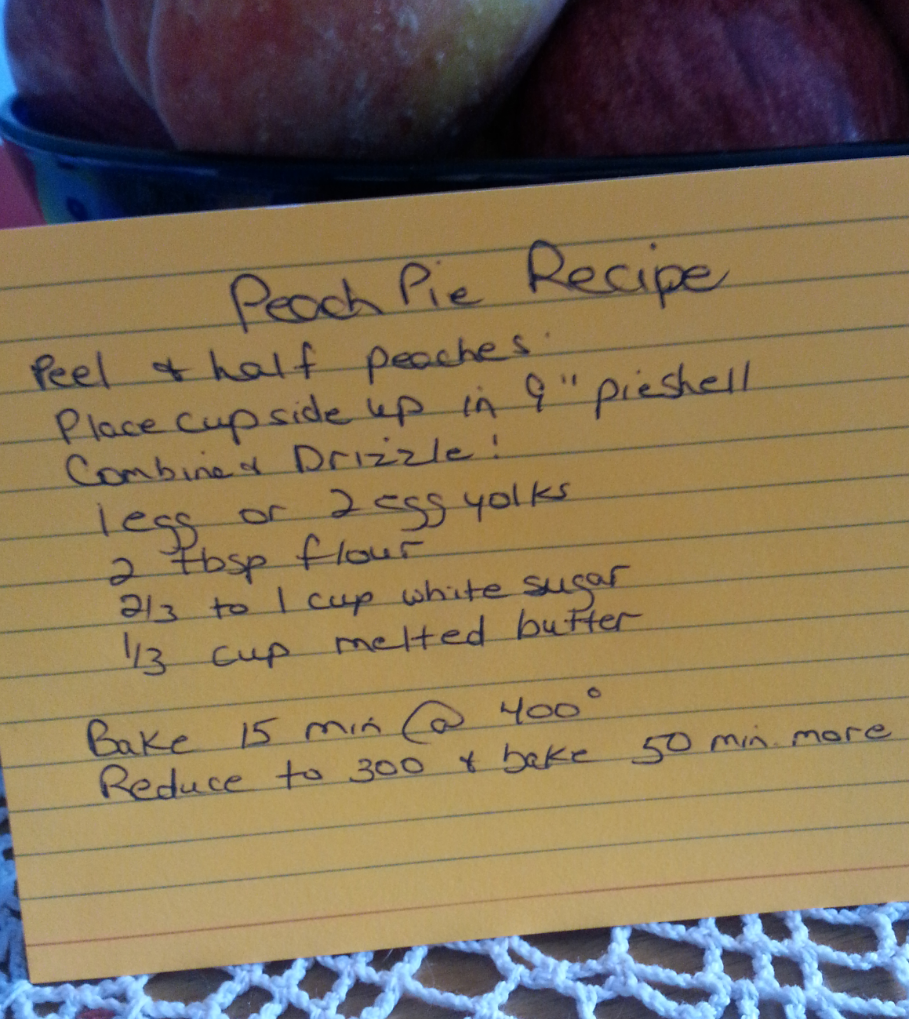 Peach Pie Recipe
Peel & half peaches.
Place cup side up in 9" pieshell
Combine & Drizzle!
1 egg or 2 egg yolks
2 tbsp flour
2/3 to 1 cup white sugar
1/3 cup melted butter
Bake 15 min @ 400°
Reduce to 300 & bake 50 min. more